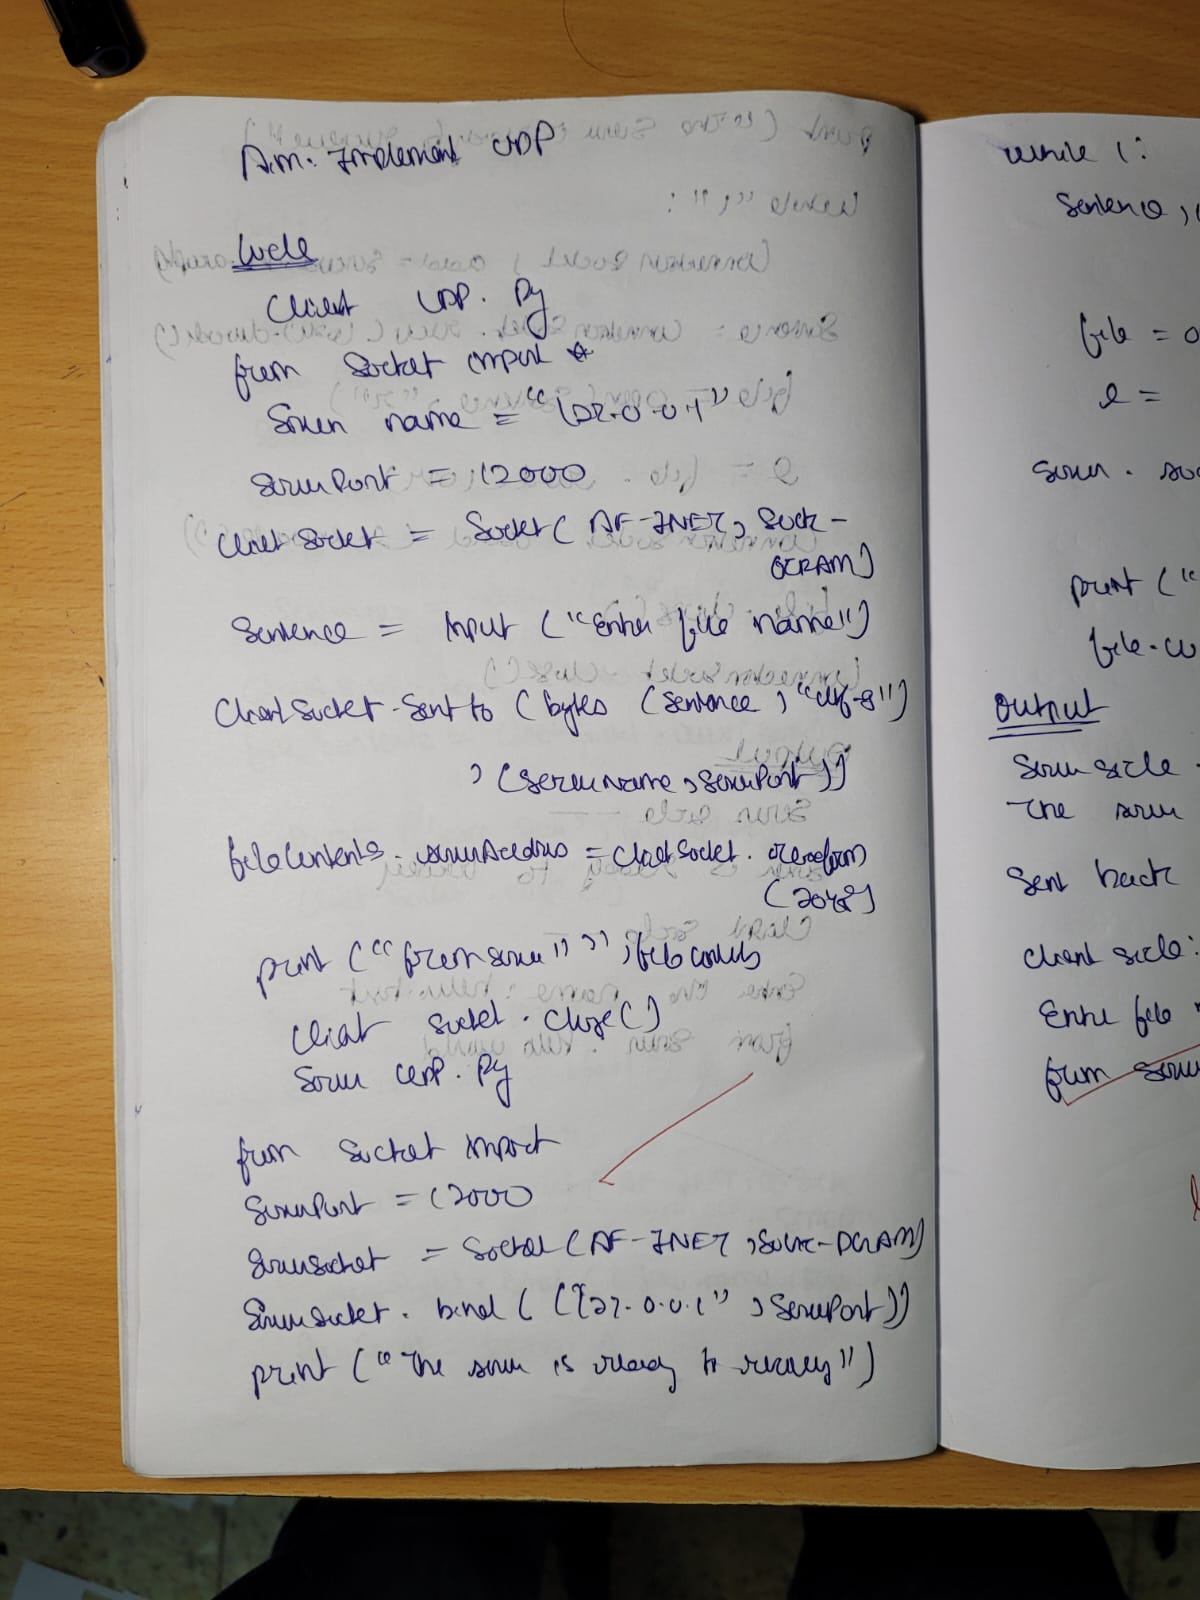 Aim: Implement UDP
Code
Client UDP. Py
from Socket import *
Server name = "127.0.0.1"
ServerPort = 12000
Client Socket = Socket ( AF-INET, Sock-
DGRAM)
Sentence = Input ("Enter file name")
ClientSocket. Sent to (bytes (Sentence, "utf-8")
, (ServerName, ServerPort))
file Contents. serverAddress = ClientSocket.
(2048)
print ("from server" ,file contents
Client Socket. Close()
Server UDP. Py
from Socket import
ServerPort = 12000
ServerSocket = Socket (AF-INET, Sock-DGRAM)
ServerSocket. bind (("127.0.0.1", ServerPort))
print ("The server is ready to")
While 1:
Sentence,
file =
l =
Server.
print ("
file.
Output
Server side
The server
Sent back
Client side:
Enter file
from